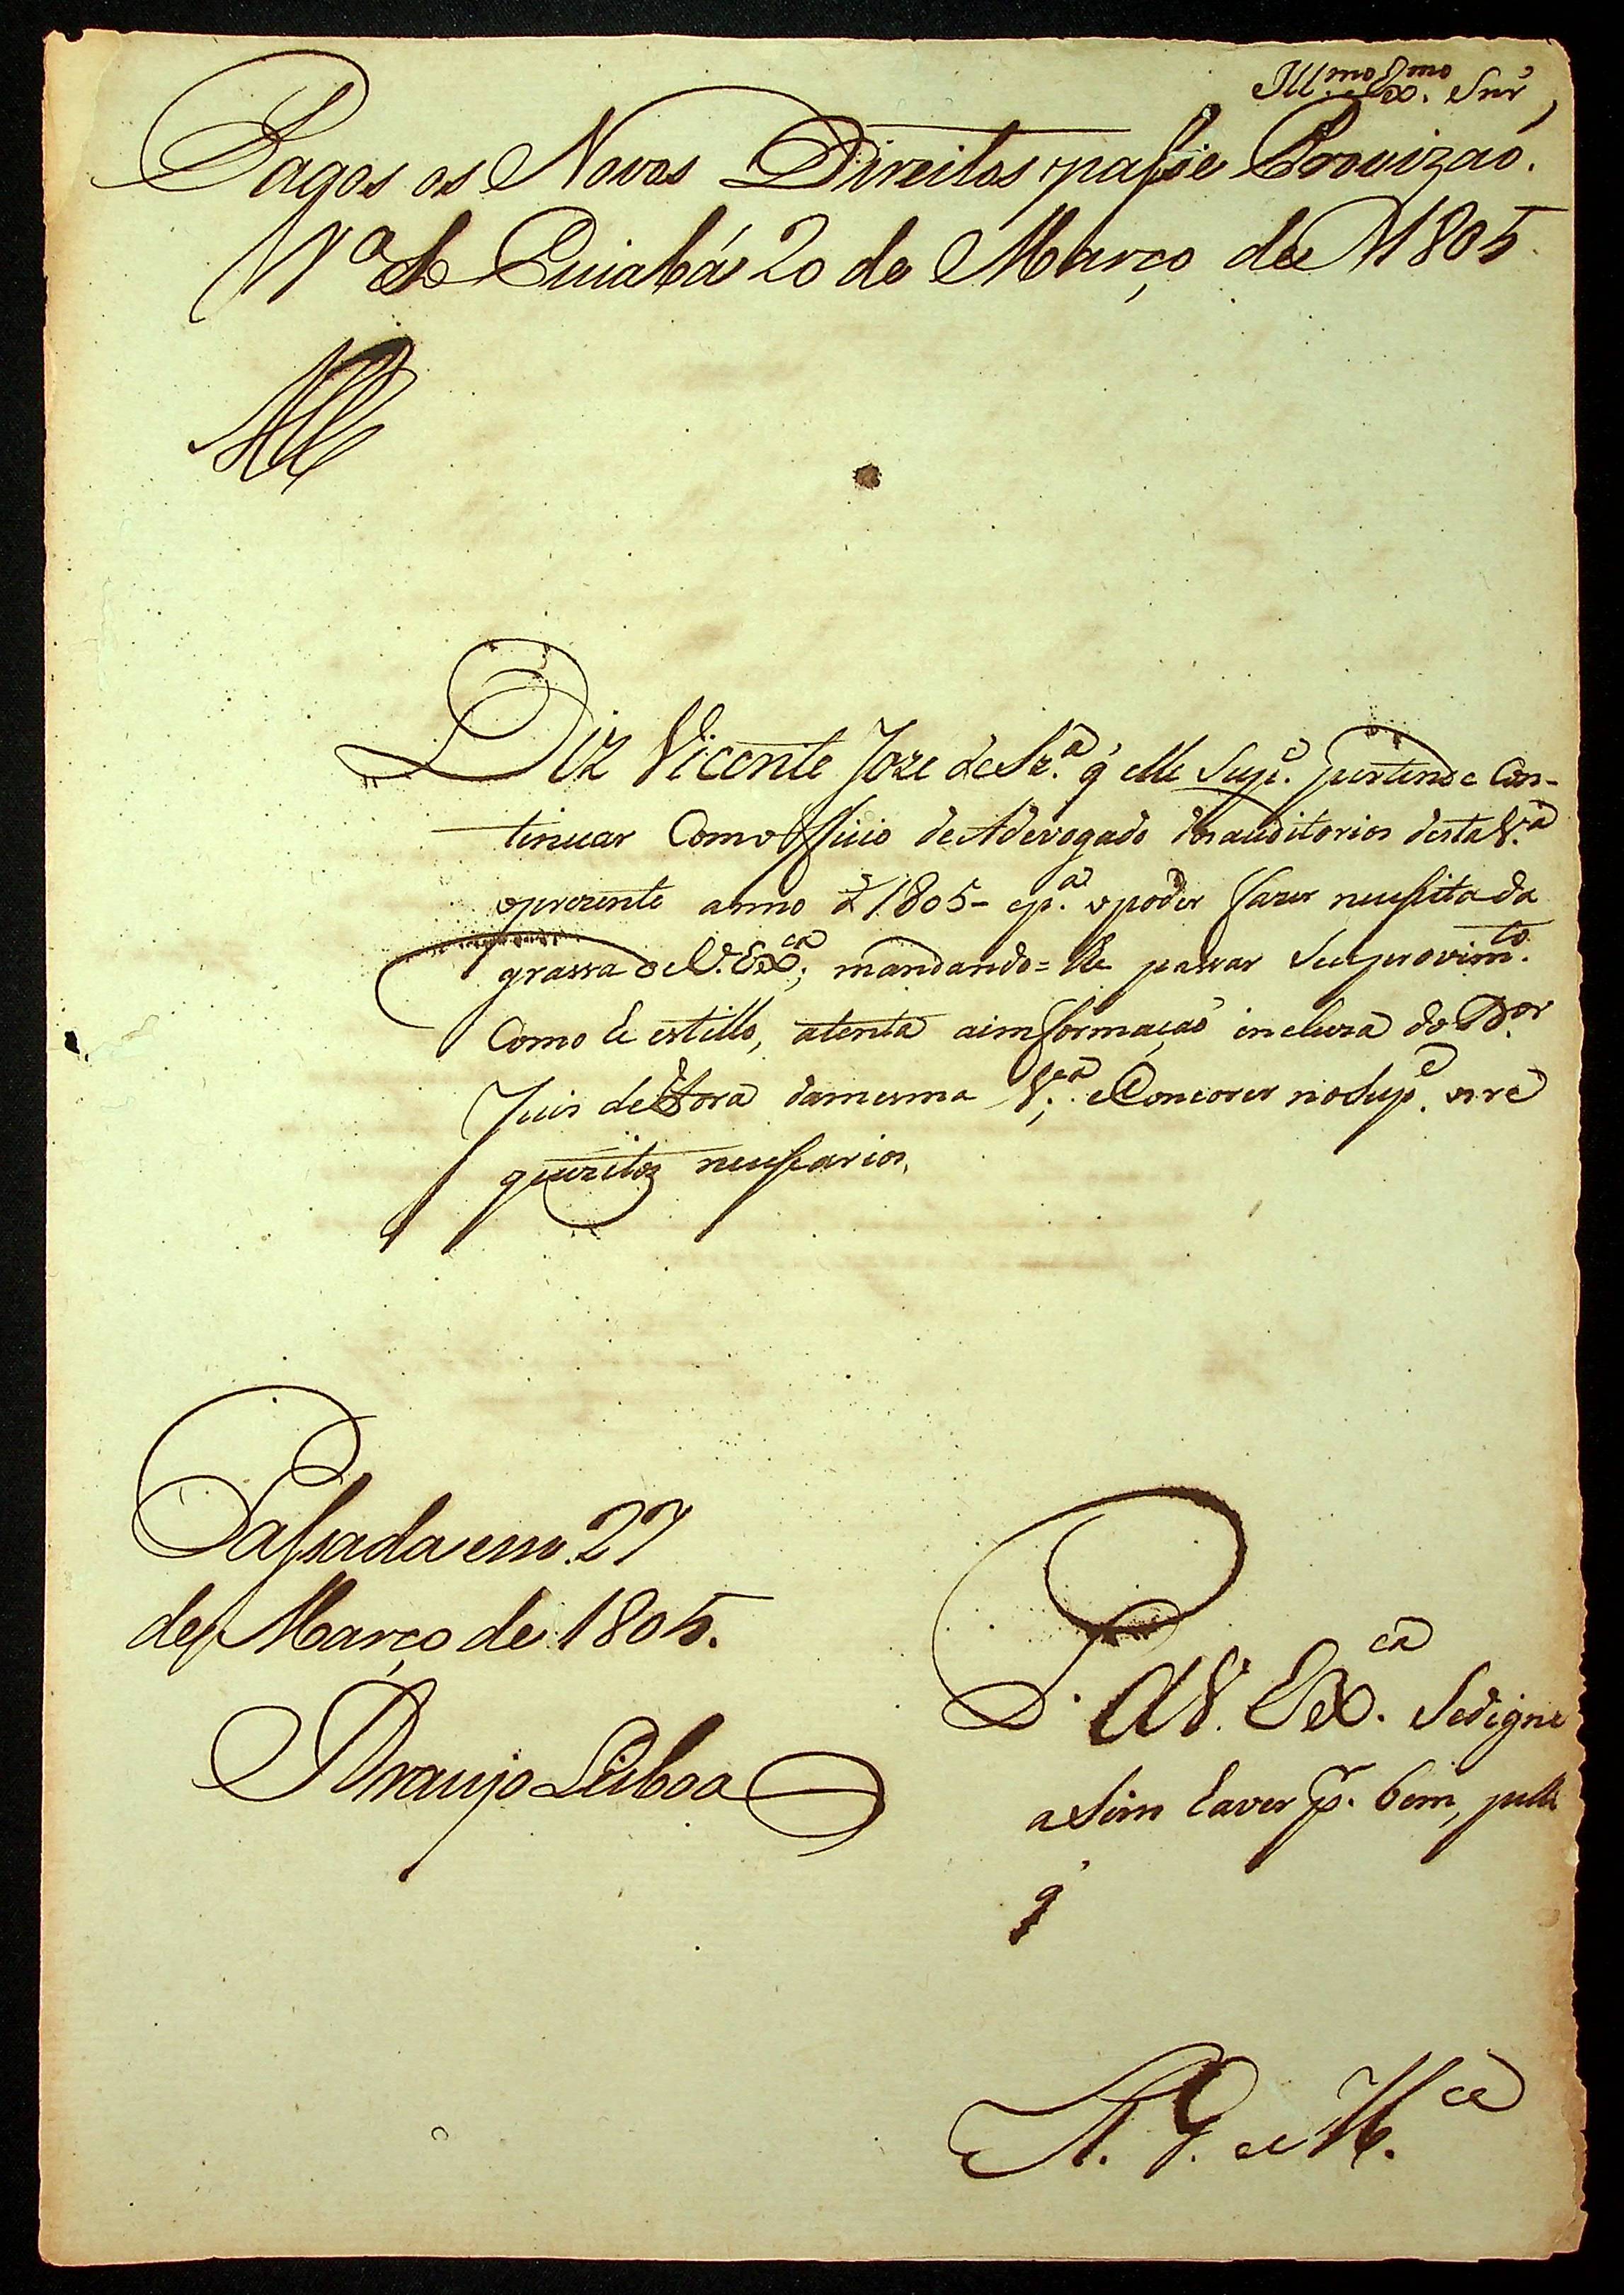 Ill.mo Ex.mo Snr
Pagos os Novos Direitos passe Provizaõ.
V.a do Cuiabá 20 de Março de 1805
Diz Vicente Joze de Sz.a q̃ elle Sup.e pertende Con-
tinuar Como Officio de Adevogado dos auditorios desta V.a
oprezente anno de 1805 - ep.a opoder fazer necessita da
grassa de V. Ex.ca; mandando=lhe passar Seuprovim.to
Como hé estillo, atenta ainformaçaõ incluza do D.or
Juis de Fora damesma V.a eConcorer noSup.e osre
quezitos necessarios,
Passada em 27
de Março de 1805.
Araujo Lisboa
P. AV. Ex.ca Sedigne
aSim haver p.r bem, pello
q̃
E. R. M.ce